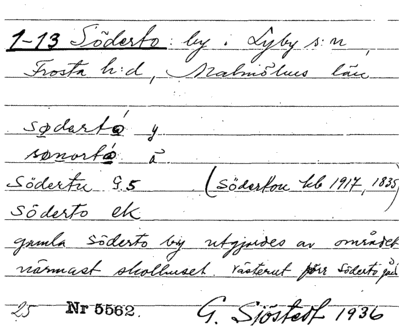 1-13 Söderto by i Lyby s:n
Frosta h:d, Malmöhus län
sødertó y
sønortó å
Södertu G.5 (Södertou kb 1917, 1835)
Söderto ek
gamla Söderto by utgjordes av området
närmast skolhuset västerut Söderto
25 Nr 5562. G. Sjöstedt 1936